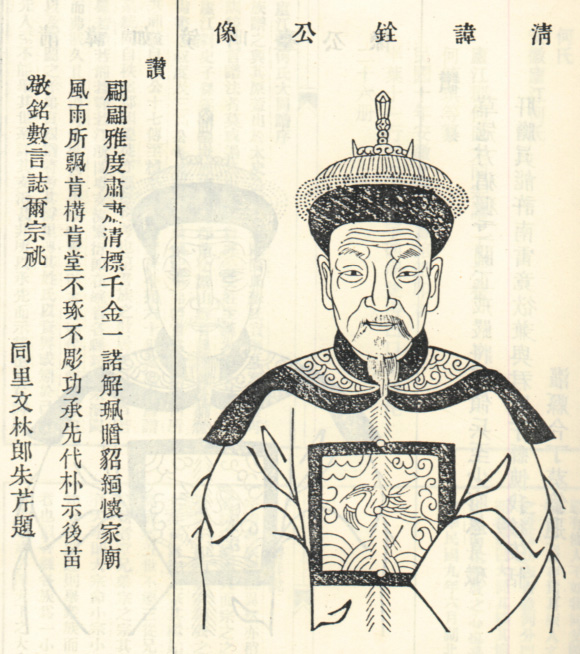 清諱銓公像
讚
翩翩雅度肅肅清標千金一諾解珮贈貂緬懷家廟
風雨所飄肯構肯堂不琢不彫功承先代朴示後苗
敬銘數言誌爾宗祧
同里文林郎朱芹題